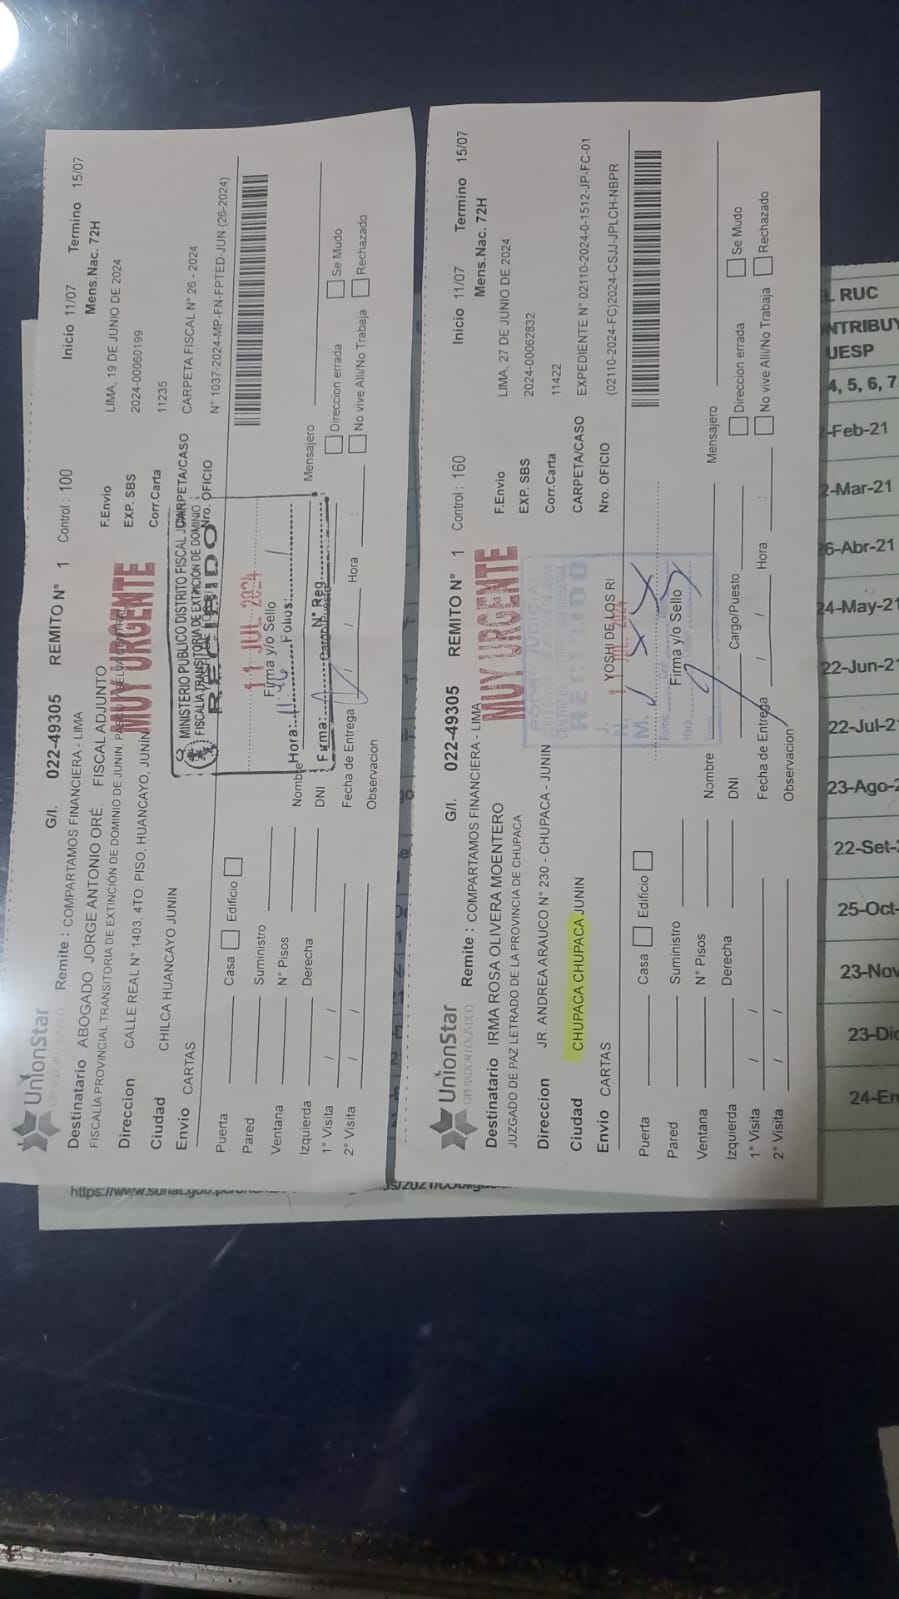 UnionStar
OPERADOR LOGISTICO
G/I. 022-49305 REMITO N° 1 Control : 100 Inicio 11/07 Termino 15/07
Remite : COMPARTAMOS FINANCIERA - LIMA
Mens.Nac. 72H
Destinatario ABOGADO JORGE ANTONIO ORÉ. FISCAL ADJUNTO
FISCALÍA PROVINCIAL TRANSITORIA DE EXTINCIÓN DE DOMINIO DE JUNIN,
Direccion CALLE REAL N° 1403, 4TO. PISO, HUANCAYO, JUNIN
Ciudad CHILCA HUANCAYO JUNIN
Envío CARTAS
F.Envio LIMA, 19 DE JUNIO DE 2024
EXP. SBS 2024-00060199
Corr.Carta 11235
CARPETA/CASO CARPETA FISCAL N° 26 - 2024
Nro. OFICIO N° 1037-2024-MP-FN-FPTED-JUN (26-2024)
MUY URGENTE
MINISTERIO PUBLICO DISTRITO FISCAL
FISCALIA TRANSITORIA DE EXTINCIÓN DE DOMINIO
RECIBIDO
11 JUL 2024
Hora: 11:46 Folios:
Firma: N° Reg.
Puerta Casa Edificio
Pared Suministro
Ventana N° Pisos
Izquierda Derecha
1° Visita / /
2° Visita / /
Firma y/o Sello
Nombre Mensajero
DNI Cargo/Puesto
Fecha de Entrega / / Hora :
Observacion
Direccion errada Se Mudo
No vive Alli/No Trabaja Rechazado
UnionStar
OPERADOR LOGISTICO
G/I. 022-49305 REMITO N° 1 Control : 160 Inicio 11/07 Termino 15/07
Remite : COMPARTAMOS FINANCIERA - LIMA
Mens.Nac. 72H
Destinatario IRMA ROSA OLIVERA MOENTERO
JUZGADO DE PAZ LETRADO DE LA PROVINCIA DE CHUPACA
Direccion JR. ANDREA ARAUCO N° 230 - CHUPACA - JUNIN
Ciudad CHUPACA CHUPACA JUNIN
Envío CARTAS
F.Envio LIMA, 27 DE JUNIO DE 2024
EXP. SBS 2024-00062832
Corr.Carta 11422
CARPETA/CASO EXPEDIENTE N° 02110-2024-0-1512-JP-FC-01
Nro. OFICIO (02110-2024-FC)2024-CSJJ-JPLCH-NBPR
MUY URGENTE
PODER JUDICIAL
RECIBIDO
YOSHI DE LOS RI
Puerta Casa Edificio
Pared Suministro
Ventana N° Pisos
Izquierda Derecha
1° Visita / /
2° Visita / /
Firma y/o Sello
Nombre Mensajero
DNI Cargo/Puesto
Fecha de Entrega / / Hora :
Observacion
Direccion errada Se Mudo
No vive Alli/No Trabaja Rechazado
RUC
NTRIBUY
UESP
4, 5, 6, 7
-Feb-21
2-Mar-21
6-Abr-21
24-May-21
22-Jun-21
22-Jul-2
23-Ago-
22-Set-
25-Oct-
23-Nov
23-Dic
24-En